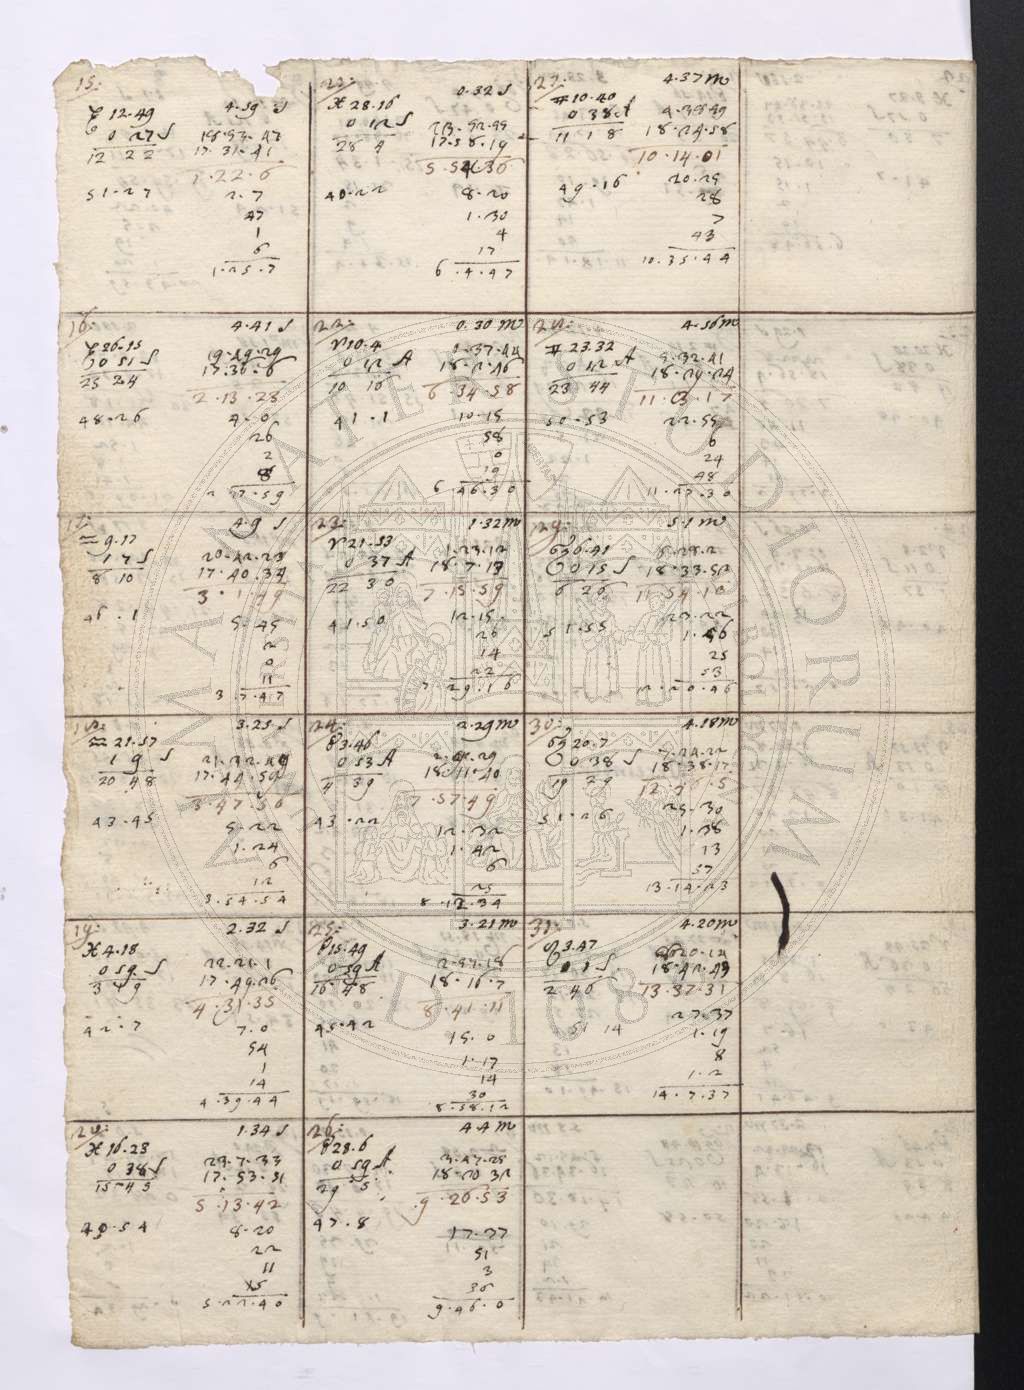 15:
4.59 S
♑ 12.49
0 27 S
12 22
18.53.47
17.31.41
1.22.6
51.27
2.7
47
1
6
1.25.7
16:
4.41 S
♑ 26.15
0 51 S
23 24
19.49.29
17.36.6
2.13.23
48.26
4.0
26
2
8
2.17.59
17:
4.9 S
♒ 9.17
1 7 S
8 10
20.42.23
17.40.34
3.1.49
46.1
5.45
2
0
11
3.7.47
18:
3.25 S
♒ 21.57
1 9 S
20 48
21.32.49
17.44.59
3.47.50
43.45
5.22
1.24
6
12
3.54.54
19:
2.32 S
♓ 4.18
0 59 S
3 19
22.21.1
17.49.26
4.31.35
42.7
7.0
54
1
14
4.39.44
20:
1.34 S
♓ 16.23
0 38 S
15 45
23.7.33
17.53.51
5.13.42
40.54
8.20
22
11
15
5.22.40
22:
0.32 S
♓ 28.16
0 12 S
28 4
23.52.55
17.58.19
5.54.36
40.22
8.20
1.30
4
17
6.4.47
23:
0.30 m
♈ 10.4
0 12 A
10 16
0.37.44
18.2.46
6.34.58
41.1
10.15
58
0
19
6.46.30
23:
1.32 m
♈ 21.53
0 37 A
22 30
1.23.12
18.7.13
7.15.59
41.50
12.15
26
14
22
7.29.16
24:
2.29 m
♉ 3.46
0 53 A
4 39
18.11.40
7.57.49
43.22
12.32
1.42
6
25
8.12.34
25:
3.21 m
♉ 15.49
0 59 A
16 48
2.57.18
18.16.7
8.41.11
45.42
15.0
1.17
14
30
8.58.12
26:
4.4 m
♉ 28.6
0 59 A
29 5
3.47.25
18.20.32
9.26.53
47.8
17.27
51
3
36
9.46.0
27:
4.37 m
♊ 10.40
0 38 A
11 18
4.38.59
18.24.58
10.14.01
49.16
20.25
28
7
43
10.35.44
28:
4.56 m
♊ 23.32
0 12 A
23 44
5.32.41
18.29.24
11.03.17
50.53
22.55
6
24
48
11.27.30
29:
5.1 m
♋ 6.41
0 15 S
6 26
6.28.2
18.33.52
11.54.10
51.55
23.22
1.56
25
53
12.20.46
30:
4.18 m
♋ 20.7
0 38 S
19 29
7.24.22
18.38.17
12.46.5
51.26
25.30
1.38
13
57
13.14.23
31:
4.20 m
♌ 3.47
0 1 S
2 46
18.42.43
13.37.31
51 14
27.37
1.19
8
1.2
14.7.37
ALMA MATER STUDIORUM
A.D. 1088